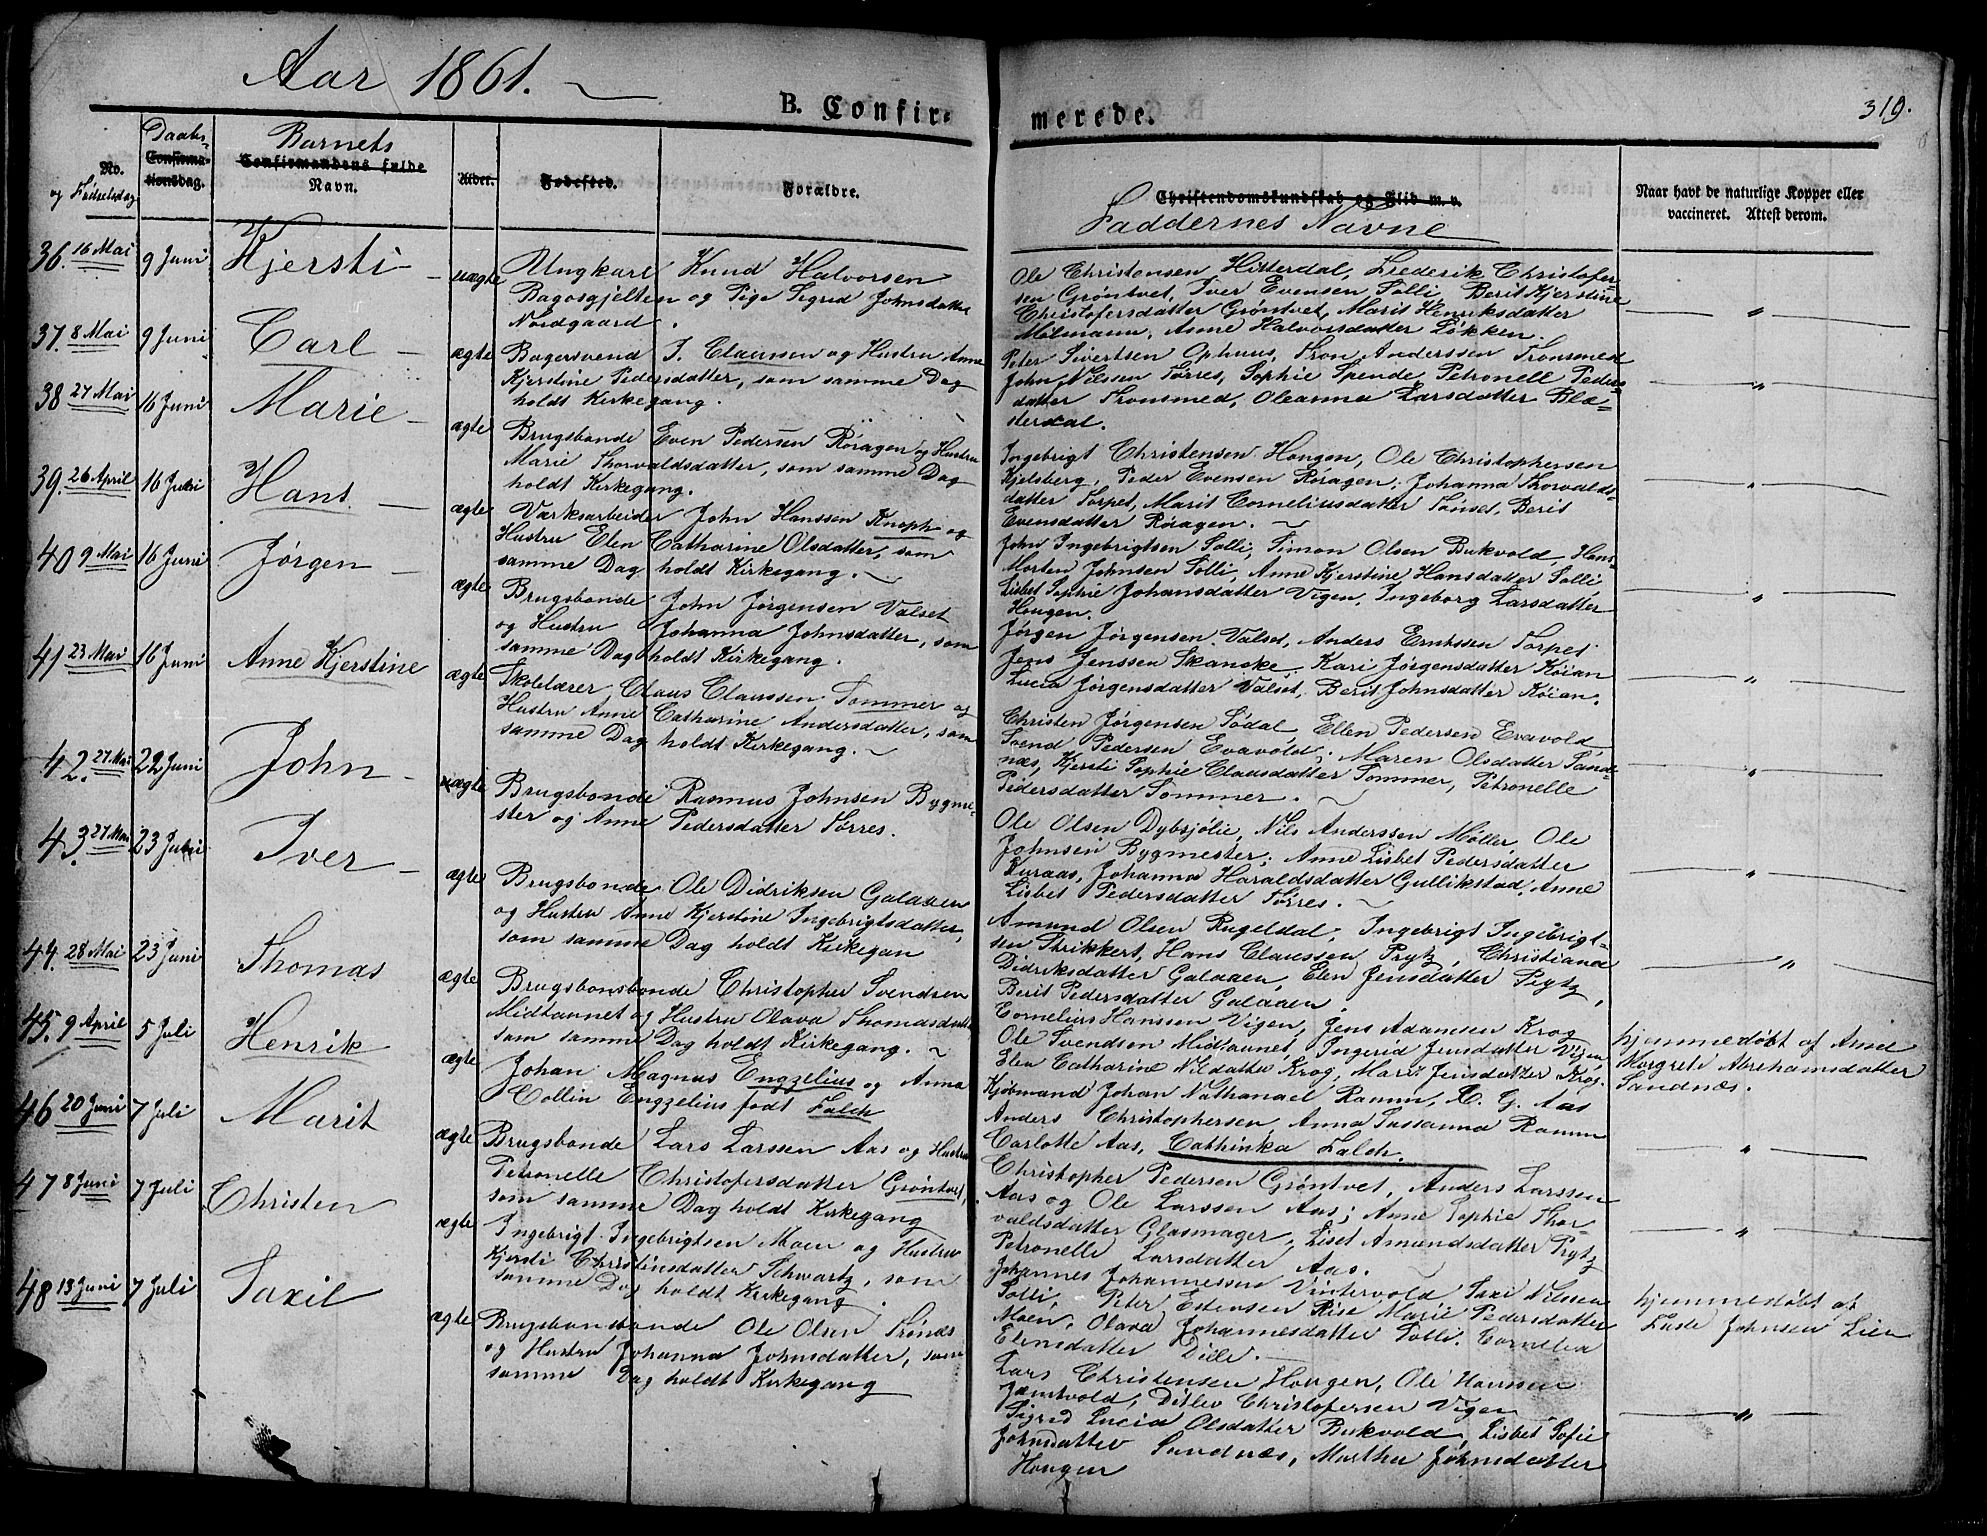 Aar 1861.
B. Confirmerede.
319.
No. og Fødselsdag
Daabs-
Confirmationsdag.
Barnets
Confirmandens fulde Navn.
Alder.
Fødested.
Forældre.
Christendomskundskab og Flid m. v.
Faddernes Navne
Naar havt de naturlige Kopper eller
vaccineret. Attest derom.
36. 16 Mai 9 Juni Kjersti uægte
Ungkarl Knud Halvorsen
og Pige Sigrid Johnsdatter
Nordgaard.
Ole Christensen Hitterdal, Frederik Christofer-
sen Grøntvet, Iver Evensen Solli, Berit Kjerstine
Christofersdatter Grøntvet, Marit Henriksdatter
Milmann, Anne Halvorsdatter Løkken.
37. 8 Mai 9 Juni Carl ægte
Bagersvend J. Claussen og Hustru Anne
Kjerstine Pedersdatter, som samme Dag
holdt Kirkegang.
Peter Sivertsen Ophuus, Tron Anderssen Tronsmed
John Nilssen Tørres, Sophie Spende, Petronell Peders-
datter Tronsmed, Oleanna Larsdatter Blæ-
sterdal.
38 27 Mai 16 Juni Marie ægte
Brugsbonde Even Pedersen Røragen og Hustru
Marie Thorvaldsdatter, som samme Dag
holdt Kirkegang.
Ingebrigt Christensen Hougen, Ole Christophersen
Kjelsberg, Peder Evensen Røragen, Johanna Thorvalds-
datter Torpet, Marit Corneliusdatter Tønset, Berit
Evensdatter Røragen.
39. 26 April 16 Juni Hans ægte
Værksarbeider John Hanssen Knoph og
Hustru Elen Catharine Olsdatter, som
samme Dag holdt Kirkegang.
John Ingebrigtsen Solli, Simon Olsen Bukvold, Hans
Morten Johnsen Solli, Anne Kjerstine Hansdatter Solli,
Lisbet Sophie Johansdatter Vigen, Ingeborg Larsdatter
Hougen.
40 9 Mai 16 Juni Jørgen ægte
Brugsbonde John Jørgensen Valset
og Hustru Johanna Johnsdatter, som
samme Dag holdt Kirkegang.
Jørgen Jørgensen Valset, Anders Erntssen Torpet
Jens Jenssen Skancke, Kari Jørgensdatter Køian
Lucia Jørgensdatter Valset, Berit Johnsdatter Køian.
41 23 Mai 16 Juni Anne Kjerstine ægte
Skolelærer Claus Claussen Sommer og
Hustru Anne Catharine Andersdatter, som
samme Dag holdt Kirkegang.
Christen Jørgensen Sødal, Ellen Pedersen Evavold,
Svend Pedersen Evavold, Maren Olsdatter Sand-
næs, Kjersti Sophie Clausdatter Sommer, Petronelle
Pedersdatter Sommer.
42. 27 Mai 22 Juni John uægte
Brugsbonde Rasmus Johnsen Bygme-
ster og Anne Pedersdatter Tørres.
Ole Olsen Dybsjølie, Nils Anderssen Møller, Ole
Johnsen Bygmester, Anne Lisbet Pedersdatter
Kuraas, Johanna Haraldsdatter Gullikstad, Anne
Lisbet Pedersdatter Tørres.
43. 27 Mai 23 Juni Iver ægte
Brugsbonde Ole Didriksen Galaaen
og Hustru Anne Kjerstine Ingebrigtsdatter,
som samme Dag holdt Kirkegan
Amund Olsen Rugeldal, Ingebrigt Ingebrigt-
sen Strikkert, Hans Claussen Prytz, Christiane
Didriksdatter Galaaen, Elen Jensdatter Prytz,
Berit Pedersdatter Galaaen.
44. 28 Mai 23 Juni Thomas ægte
Brugsbonsbonde Christopher Svendsen
Midtaunet og Hustru Olava Thomasdatter
som samme Dag holdt Kirkegang.
Cornelius Hanssen Vigen, Jens Adamsen Krog
Ole Svendsen Midtaunet, Ingerid Jensdatter Vigen,
Elen Catharine Nilsdatter Krog, Marit Jensdatter Krog.
45. 9 April 5 Juli Henrik ægte
Johan Magnus Engzelius og Anna
Collin Engzelius født Falch
Kjøbmand Johan Nathanael Ramm, C. G. Aas
Anders Christophersen, Anna Sussanna Ramm
Carlotte Aas, Cathinka Falch.
hjemmedøbt af Anne
Margrete Abrehamsdatter
Sandnæs.
46 20 Juni 7 Juli Marit ægte
Brugsbonde Lars Larssen Aas og Hustru
Petronelle Christofersdatter Grøntvet,
som samme Dag holdt Kirkegang
Christopher Pedersen Grøntvet, Anders Larssen
Aas og Ole Larssen Aas; Anne Sophie Thor-
valdsdatter Glasmager, Liset Amundsdatter Prytz
Petronelle Larsdatter Aas.
47 8 Juni 7 Juli Christen ægte
Ingebrigt Ingebrigtsen Moen og Hustru
Kjersti Christinsdatter Schwartz, som
samme Dag holdt Kirkegang.
Johannes Johannessen Vintervold Saxe Nilssen
Solli, Peter Estensen Rise, Marie Pedersdatter
Moen, Olava Johannesdatter Solli, Cornelia
Elensdatter Dille.
hjemmedøbt af
Johnsen Lien
48 13 Juni 7 Juli Saxil ægte
Brugsbonsbonde Ole Olsen Trønæs
og Hustru Johanna Johnsdatter, som
samme Dag holdt Kirkegang
Lars Christensen Hougen, Ole Hanssen
Jamtvold, Ditlev Christofersen Vigen
Sigred Lucia Olsdatter Bukvold, Lisbet Sofie
Johnsdatter Sandnæs, Marthe Johnsdatter
Hougen